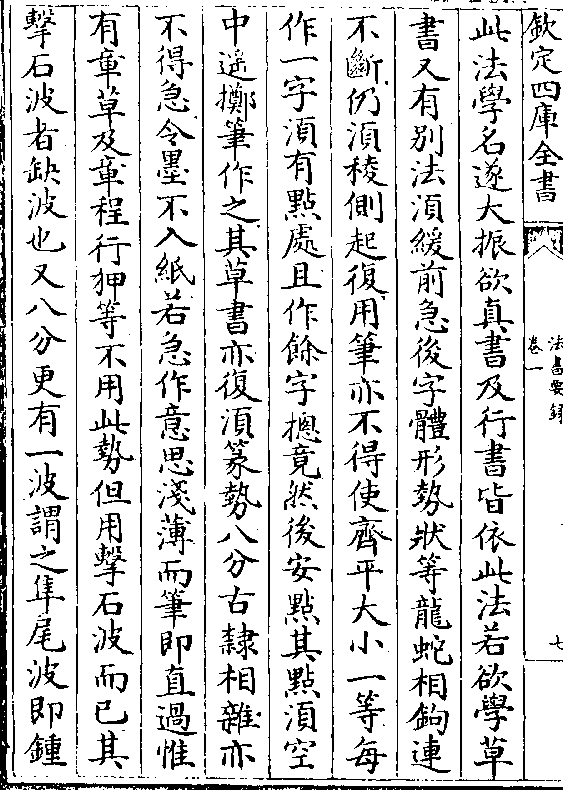 欽定四庫全書
法書要録
卷一
七
此法學名遂大振欲真書及行書皆依此法若欲學草
書又有别法湏緩前急後字體形勢狀等龍蛇相鉤連
不斷仍湏稜側起復用筆亦不得使齊平大小一等每
作一字湏有點處且作餘字摠竟然後安點其點湏空
中遥擲筆作之其草書亦復湏篆勢八分古隸相雜亦
不得急令墨不入紙若急作意思淺薄而筆即直過惟
有章草及章程行狎等不用此勢但用擊石波而已其
擊石波者缺波也又八分更有一波謂之隼尾波即鍾